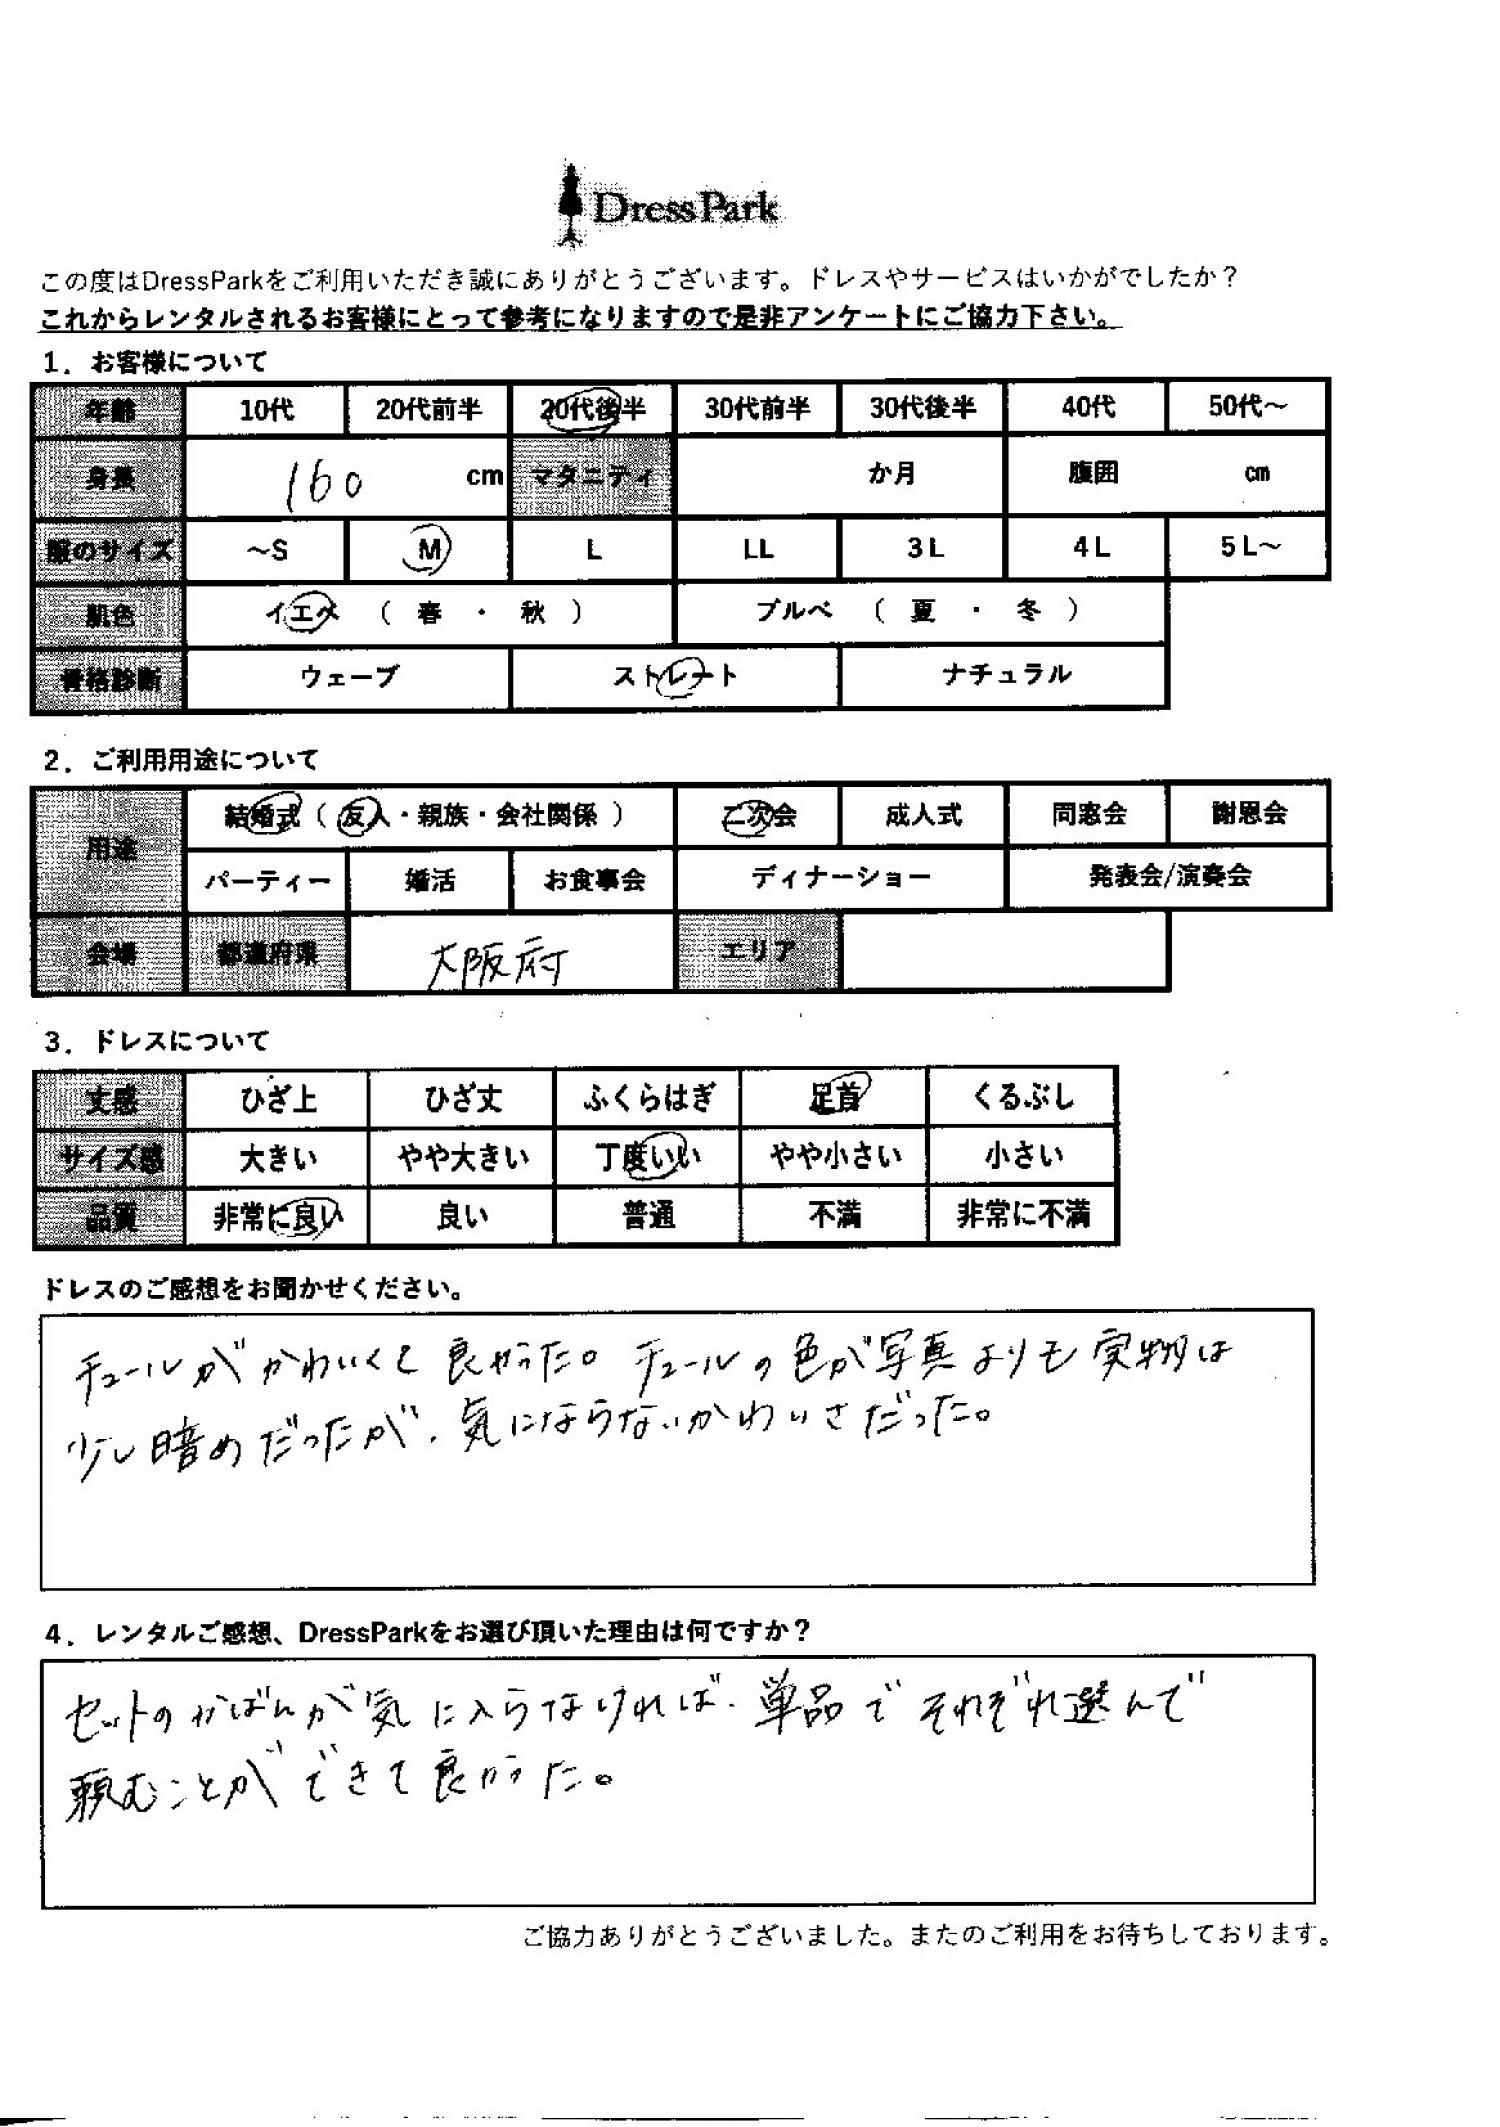 DressPark
この度はDressParkをご利用いただき誠にありがとうございます。ドレスやサービスはいかがでしたか？
これからレンタルされるお客様にとって参考になりますので是非アンケートにご協力下さい。
1．お客様について
年齢 10代 20代前半 20代後半 30代前半 30代後半 40代 50代～
身長 160 cm マタニティ か月 腹囲 cm
服のサイズ ～S M L LL 3L 4L 5L～
肌色 イエベ （ 春 ・ 秋 ） ブルベ （ 夏 ・ 冬 ）
骨格診断 ウェーブ ストレート ナチュラル
2．ご利用用途について
用途 結婚式（ 友人・親族・会社関係 ） 二次会 成人式 同窓会 謝恩会
パーティー 婚活 お食事会 ディナーショー 発表会/演奏会
会場 都道府県 大阪府 エリア
3．ドレスについて
丈感 ひざ上 ひざ丈 ふくらはぎ 足首 くるぶし
サイズ感 大きい やや大きい 丁度いい やや小さい 小さい
品質 非常に良い 良い 普通 不満 非常に不満
ドレスのご感想をお聞かせください。
チュールがかわいくて良かった。チュールの色が写真よりも実物は
少し暗めだったが、気にならないかわいさだった。
4．レンタルご感想、DressParkをお選び頂いた理由は何ですか？
セットのかばんが気に入らなければ、単品でそれぞれ選んで
頼むことができて良かった。
ご協力ありがとうございました。またのご利用をお待ちしております。